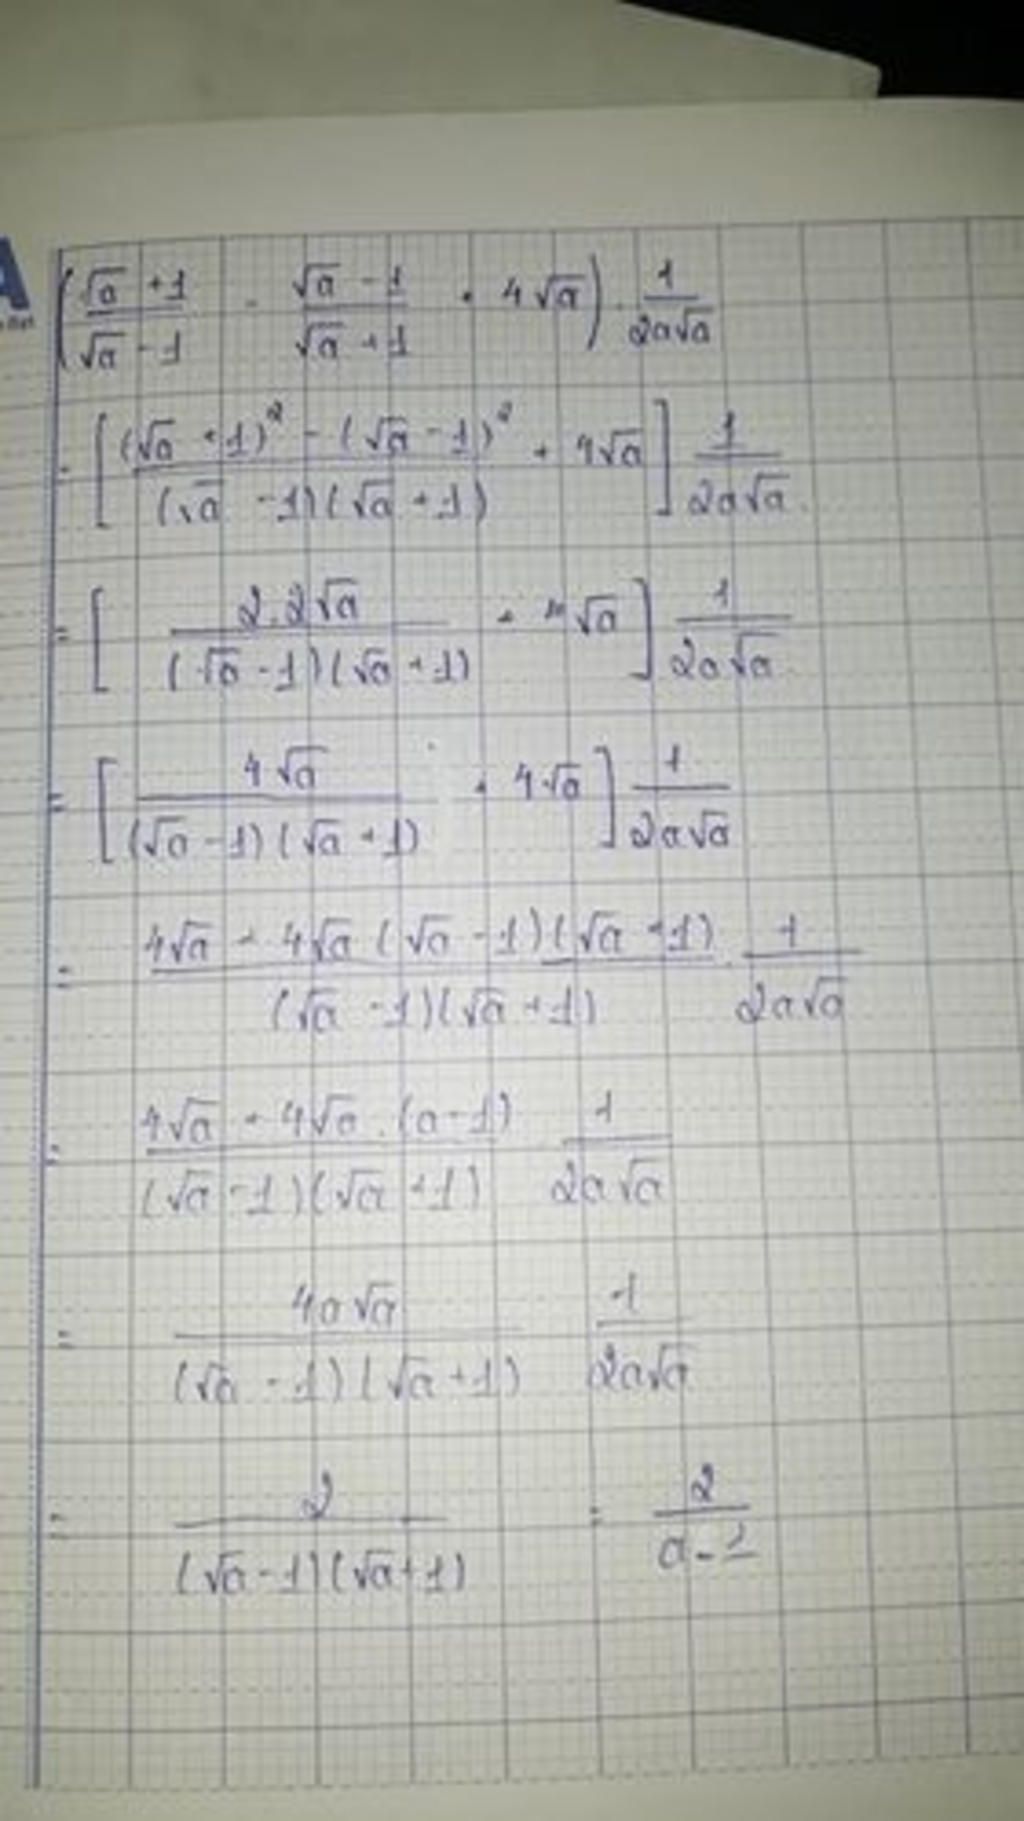 (√a + 1 / √a - 1 - √a - 1 / √a + 1 + 4√a) . 1 / 2a√a
= [(√a + 1)² - (√a - 1)² / (√a - 1)(√a + 1) + 4√a] 1 / 2a√a
= [2.2√a / (√a - 1)(√a + 1) + 4√a] 1 / 2a√a
= [4√a / (√a - 1)(√a + 1) + 4√a] 1 / 2a√a
= 4√a + 4√a (√a - 1)(√a + 1) / (√a - 1)(√a + 1) . 1 / 2a√a
= 4√a + 4√a . (a - 1) / (√a - 1)(√a + 1) 1 / 2a√a
= 4a√a / (√a - 1)(√a + 1) 1 / 2a√a
= 2 / (√a - 1)(√a + 1) = 2 / a - 1